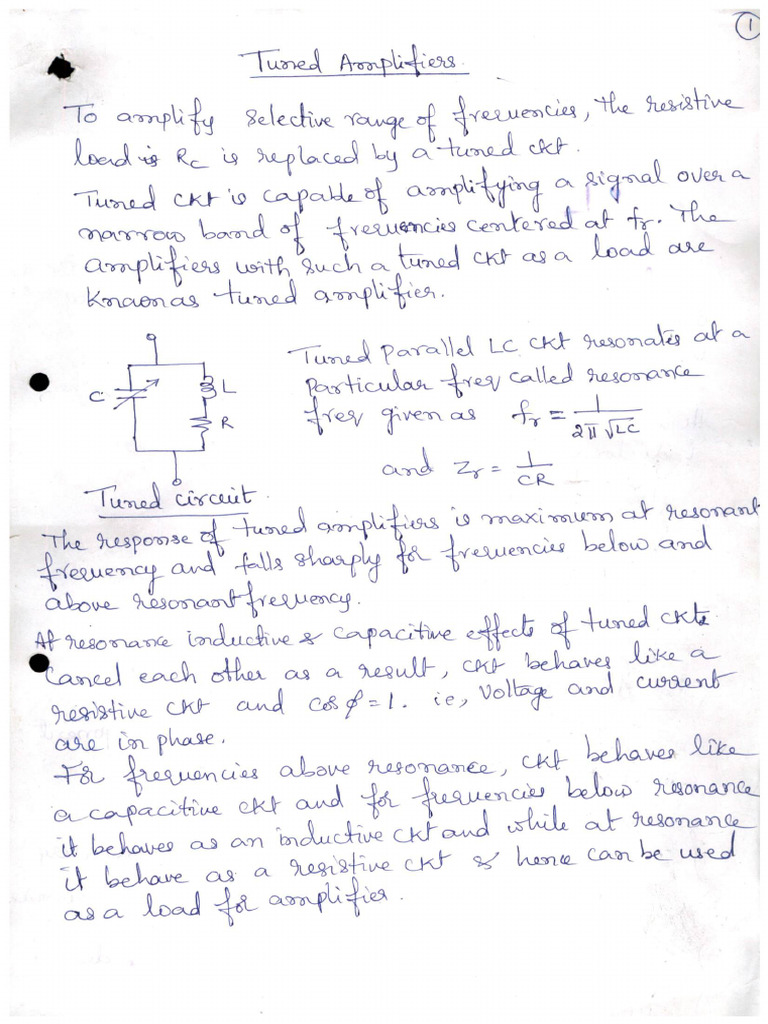 1
Tuned Amplifiers.
To amplify selective range of frequencies, the resistive
load is Rc is replaced by a tuned ckt.
Tuned ckt is capable of amplifying a signal over a
narrow band of frequencies centered at fr. The
amplifiers with such a tuned ckt as a load are
knaon as tuned amplifier.
Tuned parallel LC ckt resonates at a
particular freq called resonance
freq given as fr = 1/2π√LC
and Zr = 1/CR
C
L
R
Tuned circuit.
The response of tuned amplifiers is maximum at resonant
frequency and falls sharply for frequencies below and
above resonant frequency.
At resonance inductive & capacitive effects of tuned ckts
cancel each other as a result, ckt behaves like a
resistive ckt and cos φ = 1. ie, voltage and current
are in phase.
For frequencies above resonance, ckt behaves like
a capacitive ckt and for frequencies below resonance
it behaves as an inductive ckt and while at resonance
it behave as a resistive ckt & hence can be used
as a load for amplifier.